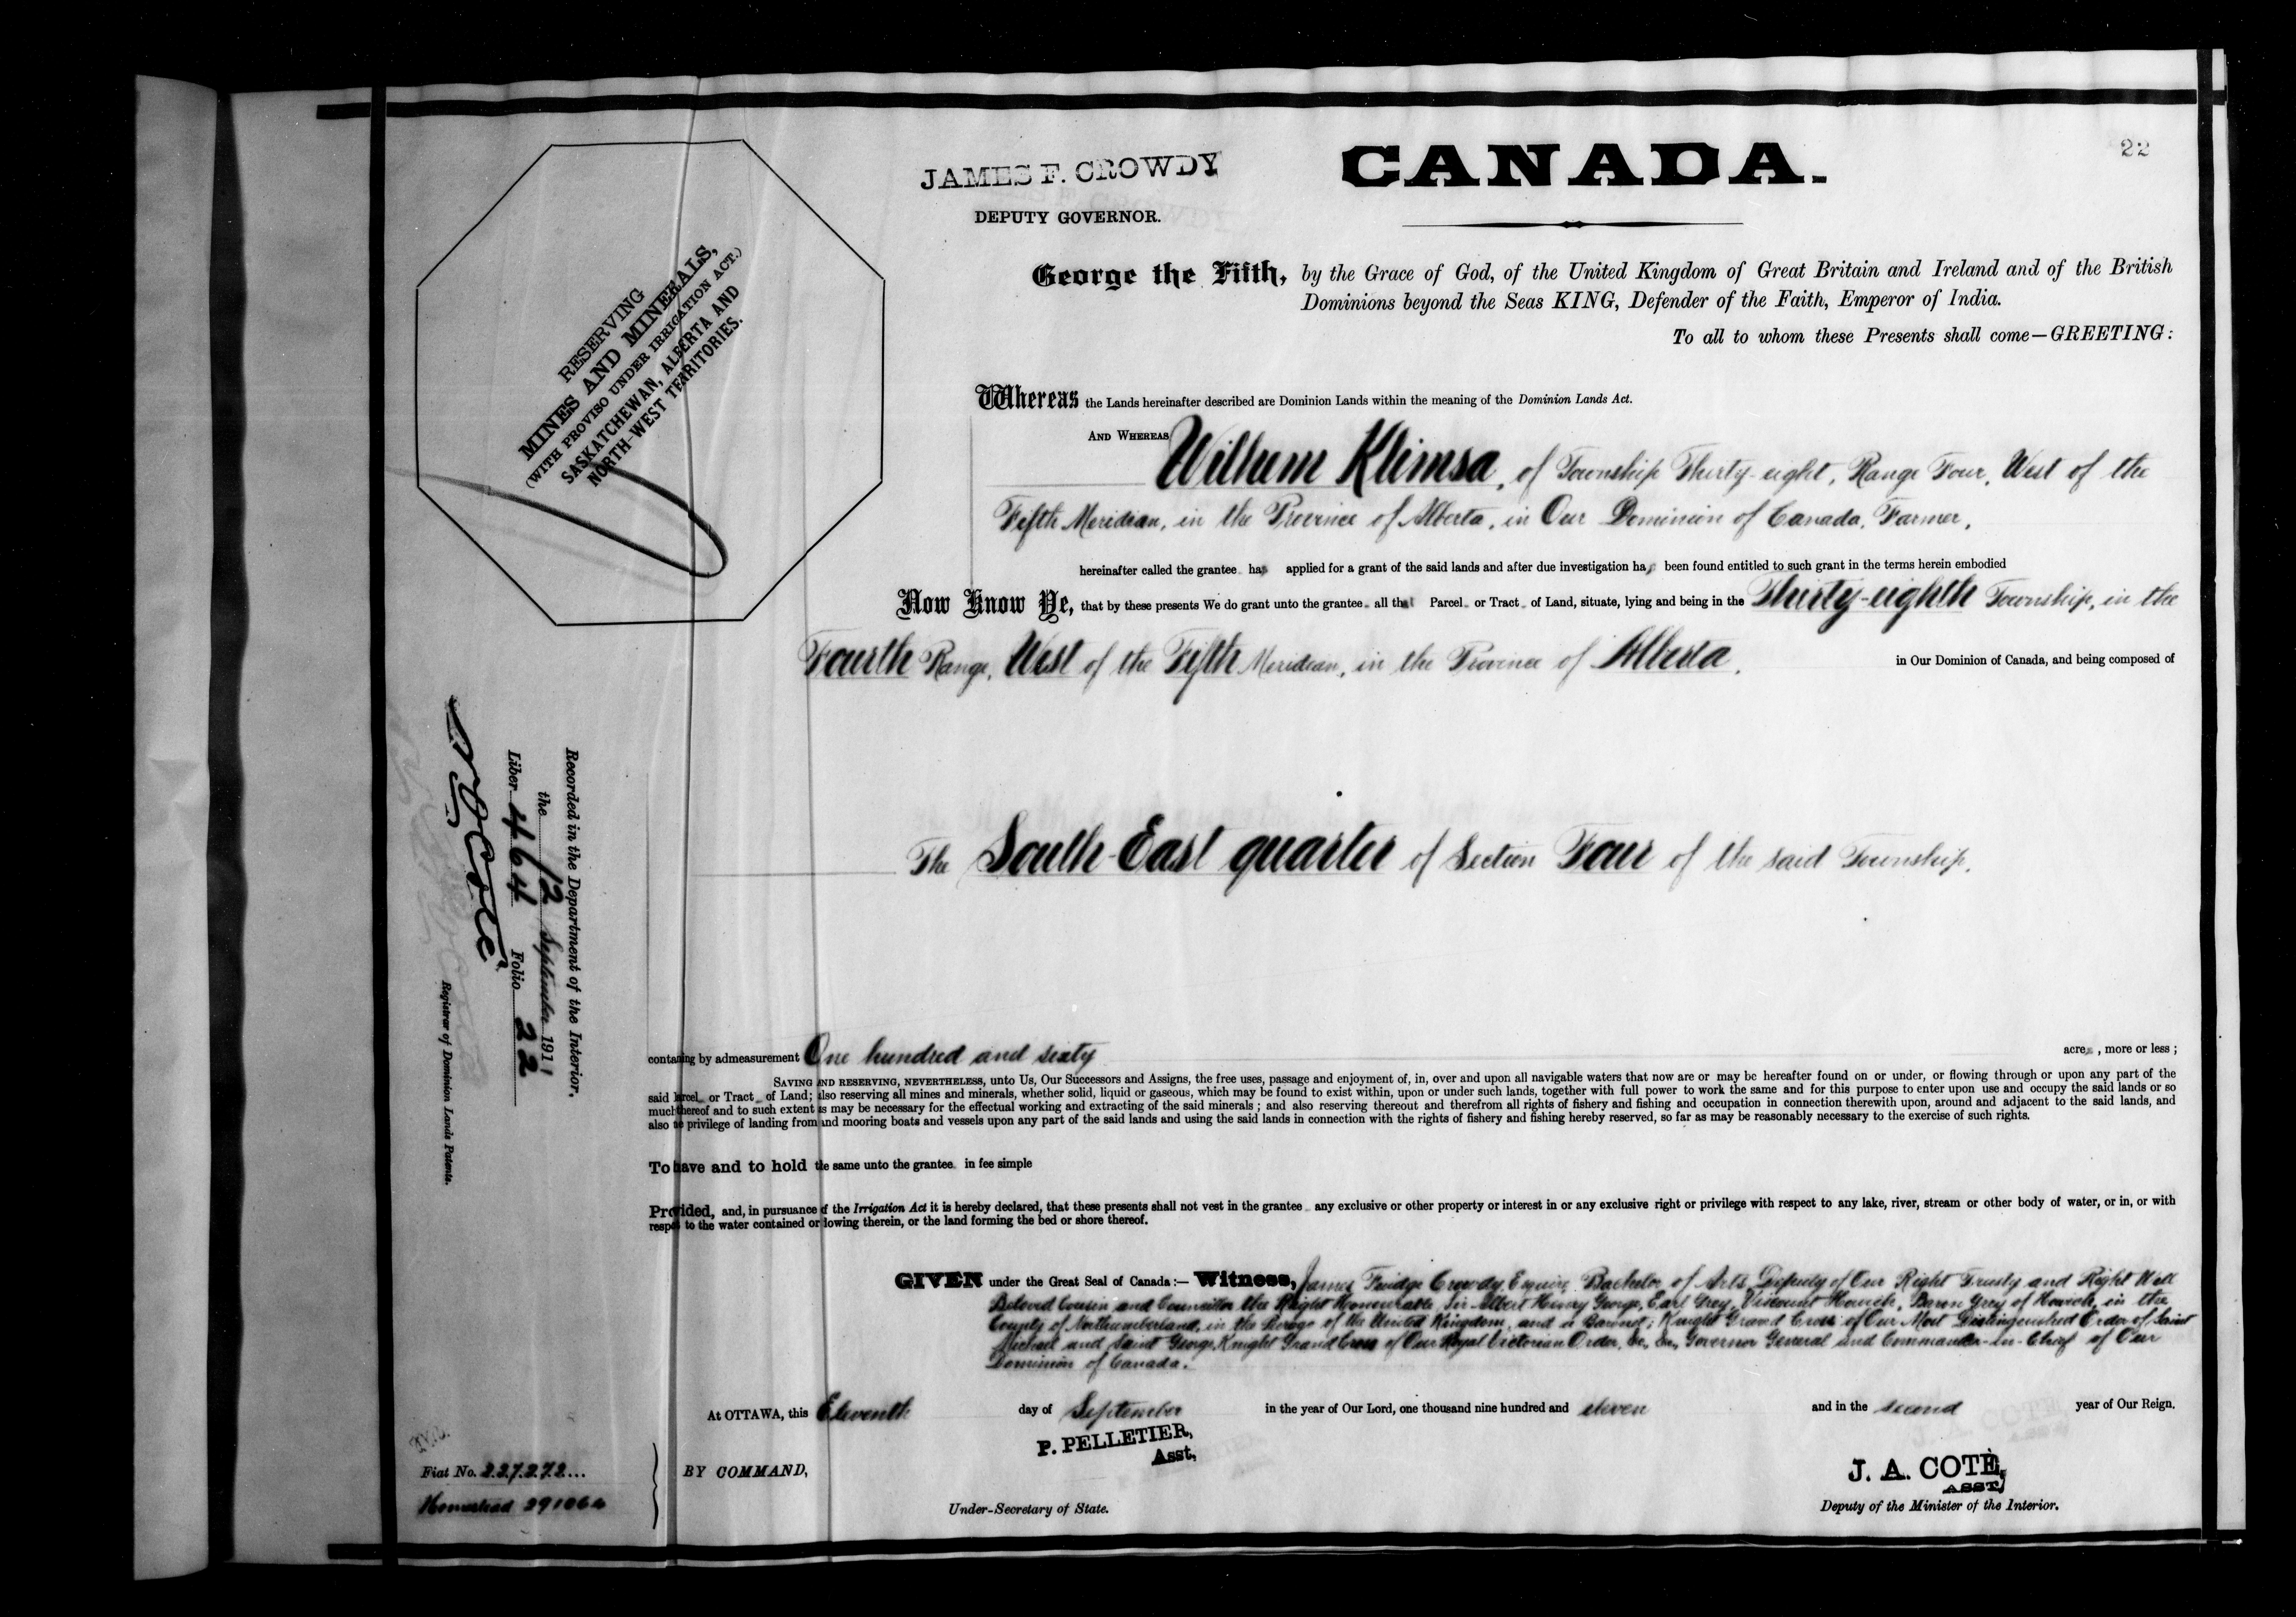 22
JAMES F. CROWDY
DEPUTY GOVERNOR.
CANADA.
RESERVING
MINES AND MINERALS,
(WITH PROVISO UNDER IRRIGATION ACT.)
SASKATCHEWAN, ALBERTA AND
NORTH-WEST TERRITORIES.
George the Fifth, by the Grace of God, of the United Kingdom of Great Britain and Ireland and of the British
Dominions beyond the Seas KING, Defender of the Faith, Emperor of India.
To all to whom these Presents shall come—GREETING:
Whereas the Lands hereinafter described are Dominion Lands within the meaning of the Dominion Lands Act.
AND WHEREAS Wilhem Klimsa, of Township Thirty-eight, Range Four, West of the
Fifth Meridian, in the Province of Alberta, in Our Dominion of Canada, Farmer,
hereinafter called the grantee has applied for a grant of the said lands and after due investigation has been found entitled to such grant in the terms herein embodied
Now Know Ye, that by these presents We do grant unto the grantee all that Parcel or Tract of Land, situate, lying and being in the Thirty-eighth Township, in the
Fourth Range, West of the Fifth Meridian, in the Province of Alberta, in Our Dominion of Canada, and being composed of
The South-East quarter of Section Four of the said Township,
Recorded in the Department of the Interior,
the 12 September 1911
Liber 464 Folio 22
N O Coté
Registrar of Dominion Lands Patents.
containing by admeasurement One hundred and sixty acres, more or less;
SAVING AND RESERVING, NEVERTHELESS, unto Us, Our Successors and Assigns, the free uses, passage and enjoyment of, in, over and upon all navigable waters that now are or may be hereafter found on or under, or flowing through or upon any part of the
said Parcel or Tract of Land; also reserving all mines and minerals, whether solid, liquid or gaseous, which may be found to exist within, upon or under such lands, together with full power to work the same and for this purpose to enter upon use and occupy the said lands or so
much thereof and to such extent as may be necessary for the effectual working and extracting of the said minerals; and also reserving thereout and therefrom all rights of fishery and fishing and occupation in connection therewith upon, around and adjacent to the said lands, and
also the privilege of landing from and mooring boats and vessels upon any part of the said lands and using the said lands in connection with the rights of fishery and fishing hereby reserved, so far as may be reasonably necessary to the exercise of such rights.
To have and to hold the same unto the grantee in fee simple
Provided, and, in pursuance of the Irrigation Act it is hereby declared, that these presents shall not vest in the grantee any exclusive or other property or interest in or any exclusive right or privilege with respect to any lake, river, stream or other body of water, or in, or with
respect to the water contained or flowing therein, or the land forming the bed or shore thereof.
GIVEN under the Great Seal of Canada:— Witness, James Fridge Crowdy, Esquire, Bachelor of Arts, Deputy of Our Right Trusty and Right Well
Beloved Cousin and Councillor the Right Honourable Sir Albert Henry George, Earl Grey, Viscount Howick, Baron Grey of Howick, in the
County of Northumberland, in the Peerage of the United Kingdom, and a Baronet; Knight Grand Cross of Our Most Distinguished Order of Saint
Michael and Saint George, Knight Grand Cross of Our Royal Victorian Order, &c., &c., Governor General and Commander-in-Chief of Our
Dominion of Canada.
At OTTAWA, this Eleventh day of September in the year of Our Lord, one thousand nine hundred and eleven and in the second year of Our Reign.
P. PELLETIER,
Asst,
Fiat No. 227272...
BY COMMAND,
J. A. COTÉ,
ASST
Homestead 291064
Under-Secretary of State.
Deputy of the Minister of the Interior.